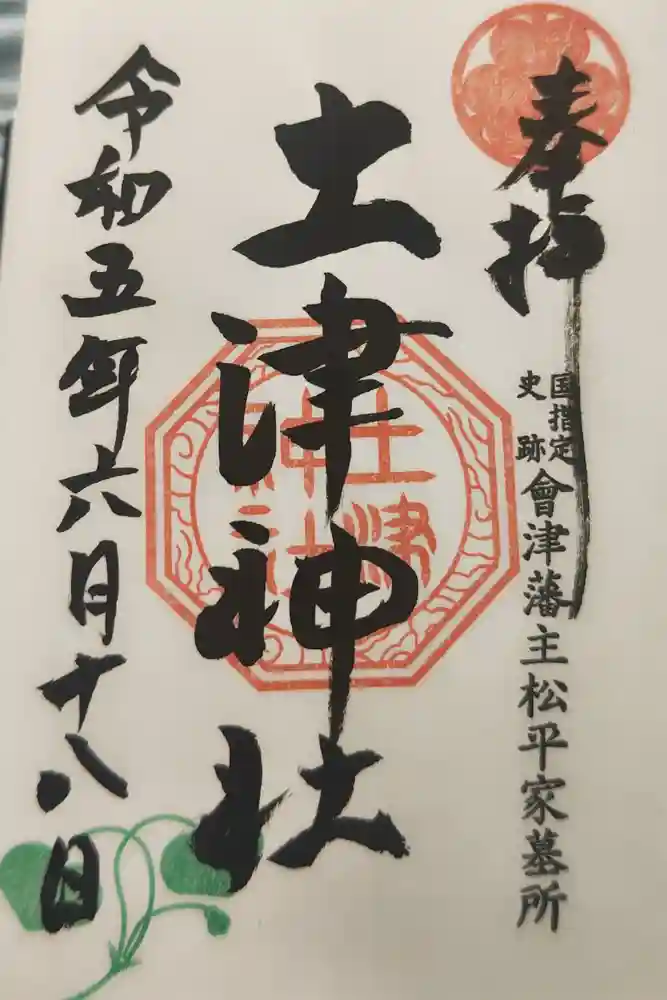 奉拝
国指定
史跡
會津藩主松平家墓所
土津神社
土津
神社
令和五年六月十八日